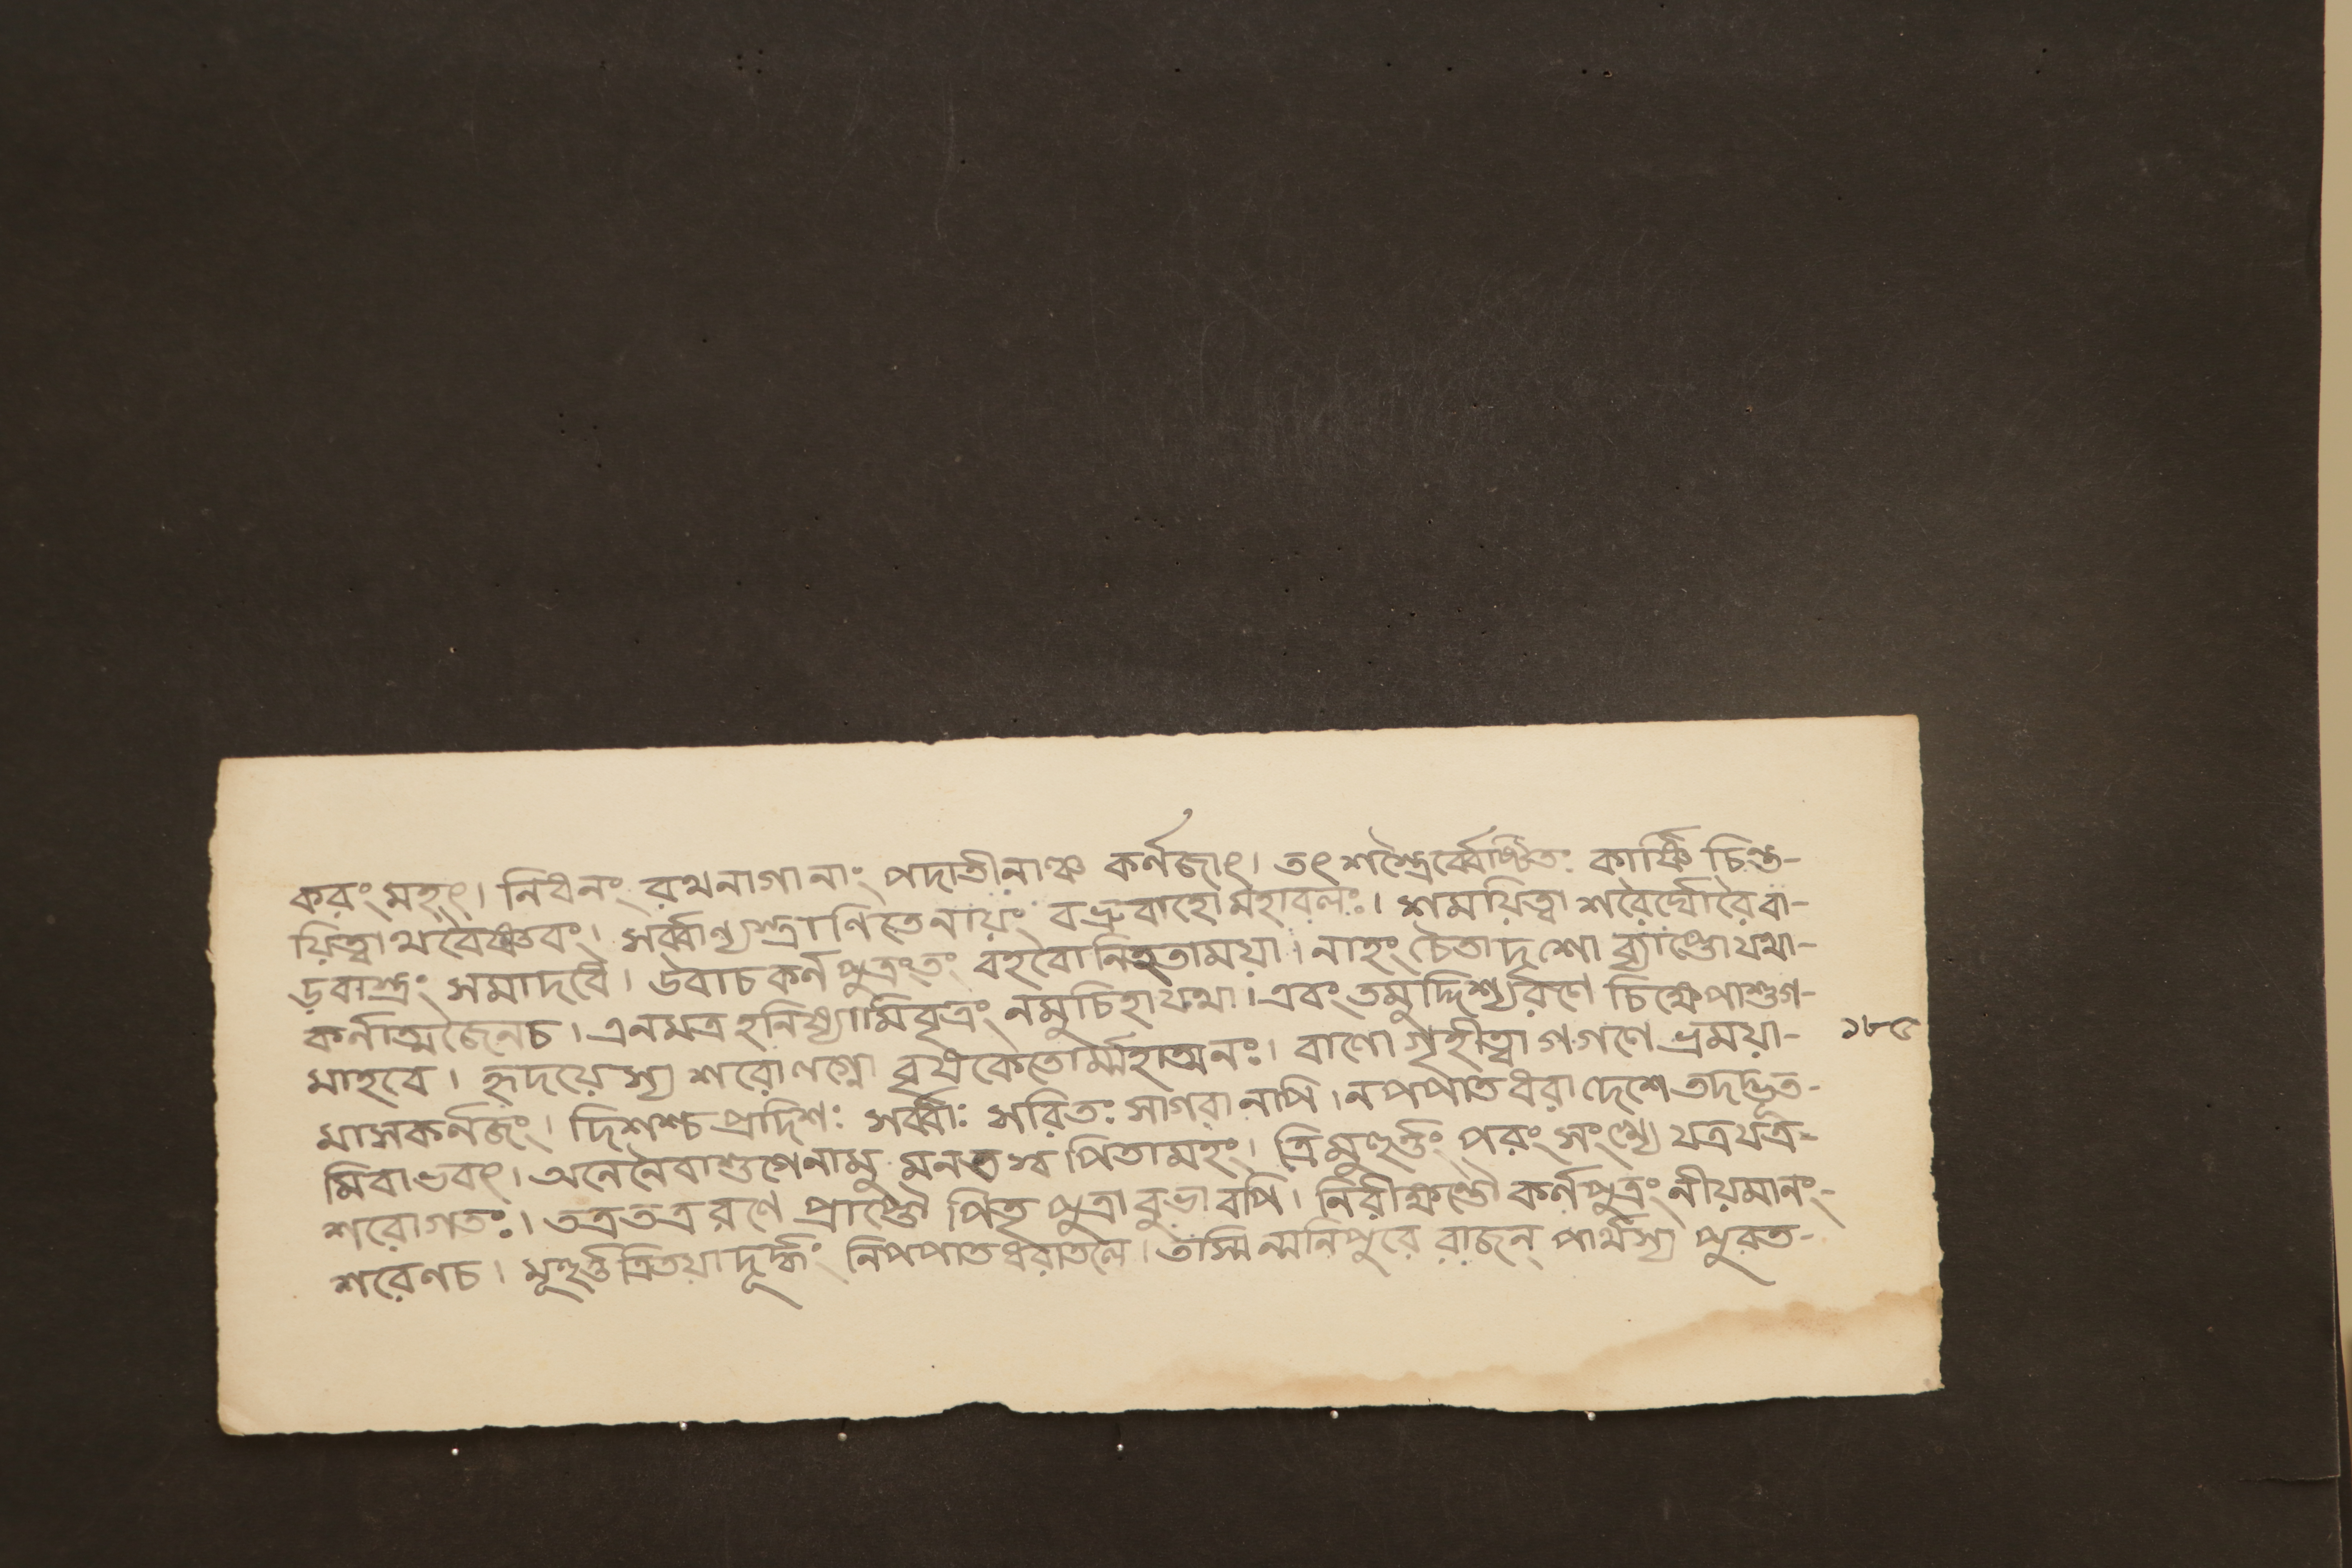 করং মহৎ। নিধনং রথনাগানাং পদাতীনাঞ্চ কর্ণজাৎ। তৎ শস্ত্রৈর্ব্বেষ্টিতঃ কার্ষ্ণি চিন্ত-
য়িত্বাথবৈষ্ণবং। সর্ব্বাণ্যস্ত্রাণি তেনায়ং বভ্রুবাহো মহাবলঃ। শময়িত্বা শরৈর্ঘোরৈ বা-
ড়বাস্ত্রং সমাদবে। উবাচ কর্ণপুত্রংতং বহবো নিহতাময়া। নাহং চৈতাদৃশো ব্যাপ্তো যথা-
কর্ণাত্মজৈনচ। এনমত্র হনিষ্যামিবৃত্রং নমুচিহাযথা। এবং তমুদ্দিশ্যরণে চিক্ষেপাশুগ-
মাহবে। হৃদয়েস্য শরোণগ্নো বৃষকেতোর্ম্মহাত্মনঃ। বাণো গৃহীত্বা গগণে ভ্রময়া- ১৮৫
মাসকর্ণজং। দিশশ্চ প্রদিশঃ সর্ব্বাঃ সরিতঃ সাগরানপি। নপপাত ধরাদেশে তদদ্ভুত-
মিবাভবৎ। অনেনৈবাশুগেনামু মনতশ্ব পিতামহং। ত্রিমুহূর্ত্তং পরং সংখ্যে যত্রযত্র-
শরোগতঃ। তত্রতত্র রণে প্রাপ্তৌ পিতৃ পুত্রাবুভাবপি। নিরীক্ষন্তৌ কর্ণপুত্রং নীয়মানং-
শরেণচ। মূহূর্ত্তত্রিতয়াদূর্দ্ধং নিপপাত ধরাতলে। তস্মিন্মনিপুরে রাজন্ পার্থস্য পুরত-